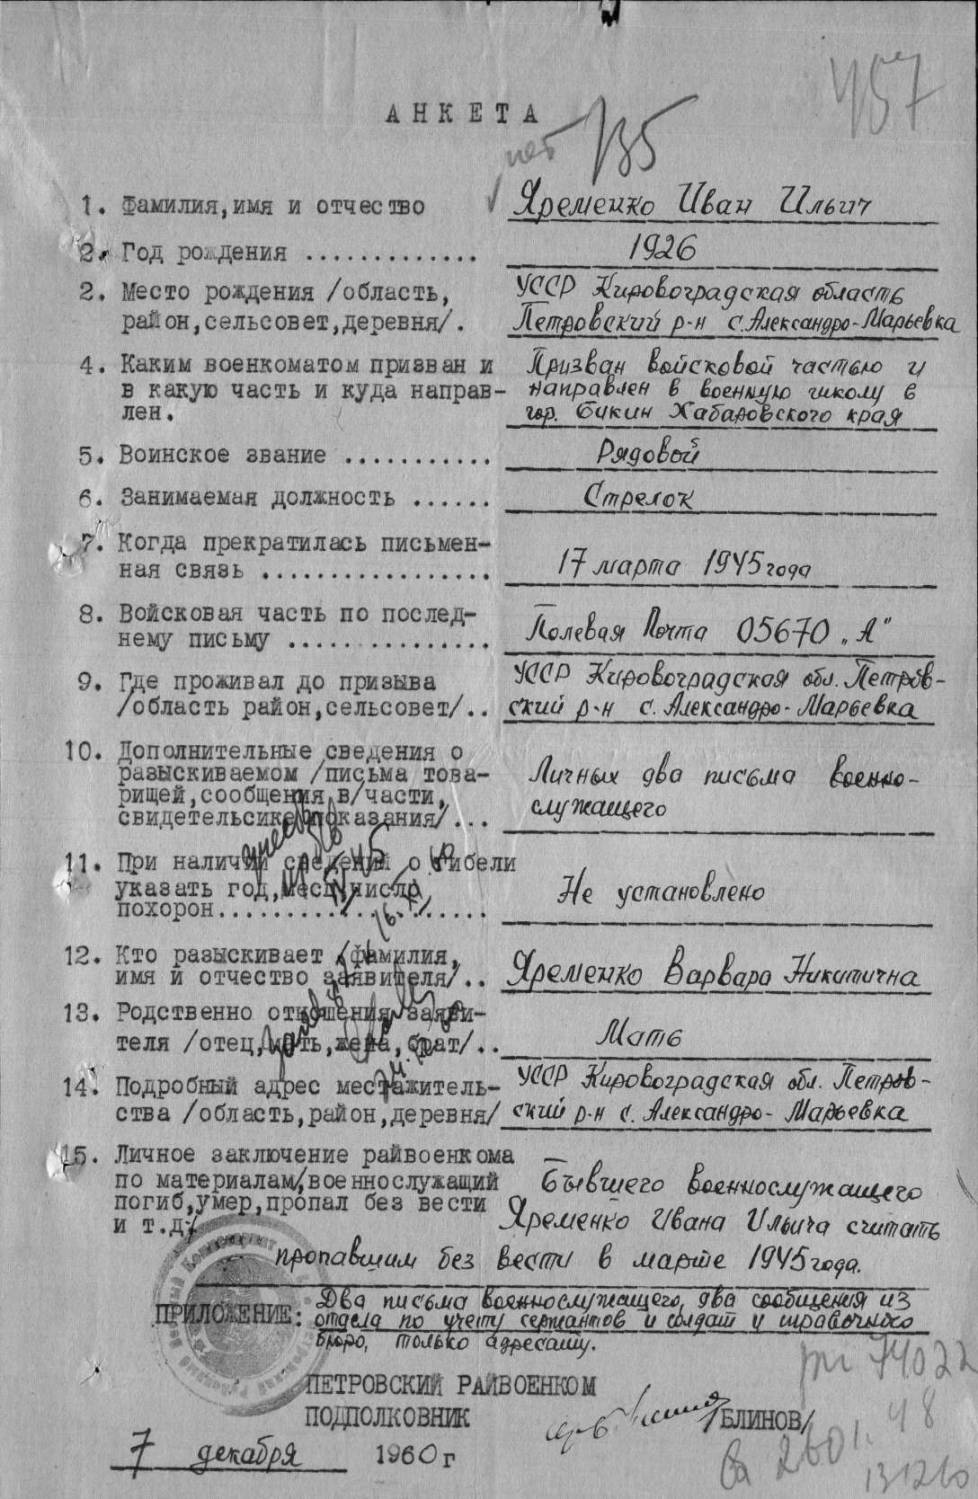 457
АНКЕТА
нет 135
1. Фамилия,имя и отчество Яременко Иван Ильич
2. Год рождения ............. 1926
2. Место рождения /область, УССР Кировоградская область
район,сельсовет,деревня/. Петровский р-н с.Александро-Марьевка
4. Каким военкоматом призван и Призван войсковой частью и
в какую часть и куда направ- направлен в военную школу в
лен. гор. Бикин Хабаровского края
5. Воинское звание ........... Рядовой
6. Занимаемая должность ...... Стрелок
7. Когда прекратилась письмен-
ная связь ................. 17 марта 1945 года
8. Войсковая часть по послед-
нему письму ............... Полевая Почта 05670 „А"
9. Где проживал до призыва УССР Кировоградская обл. Петров-
/область район,сельсовет/.. ский р-н с. Александро-Марьевка
10. Дополнительные сведения о
разыскиваемом /письма това- Личных два письма военно-
рищей,сообщения в/части, служащего
свидетельские показания/...
11. При наличии сведений о гибели
указать год,месяц,число Не установлено
похорон....................
12. Кто разыскивает /фамилия,
имя и отчество заявителя/.. Яременко Варвара Никитична
13. Родственно отношения заяви-
теля /отец,мать,жена,брат/.. Мать
14. Подробный адрес местажитель- УССР Кировоградская обл. Петров-
ства /область,район,деревня/ ский р-н с. Александро-Марьевка
15. Личное заключение райвоенкома
по материалам/,военнослужащий Бывшего военнослужащего
погиб,умер,пропал без вести Яременко Ивана Ильича считать
и т.д/
пропавшим без вести в марте 1945 года.
ПРИЛОЖЕНИЕ: Два письма военнослужащего, два сообщения из
отдела по учету сержантов и солдат и справочного
бюро, только адресату.
ПЕТРОВСКИЙ РАЙВОЕНКОМ
ПОДПОЛКОВНИК /БЛИНОВ/
7 декабря 1960 г
74022
48